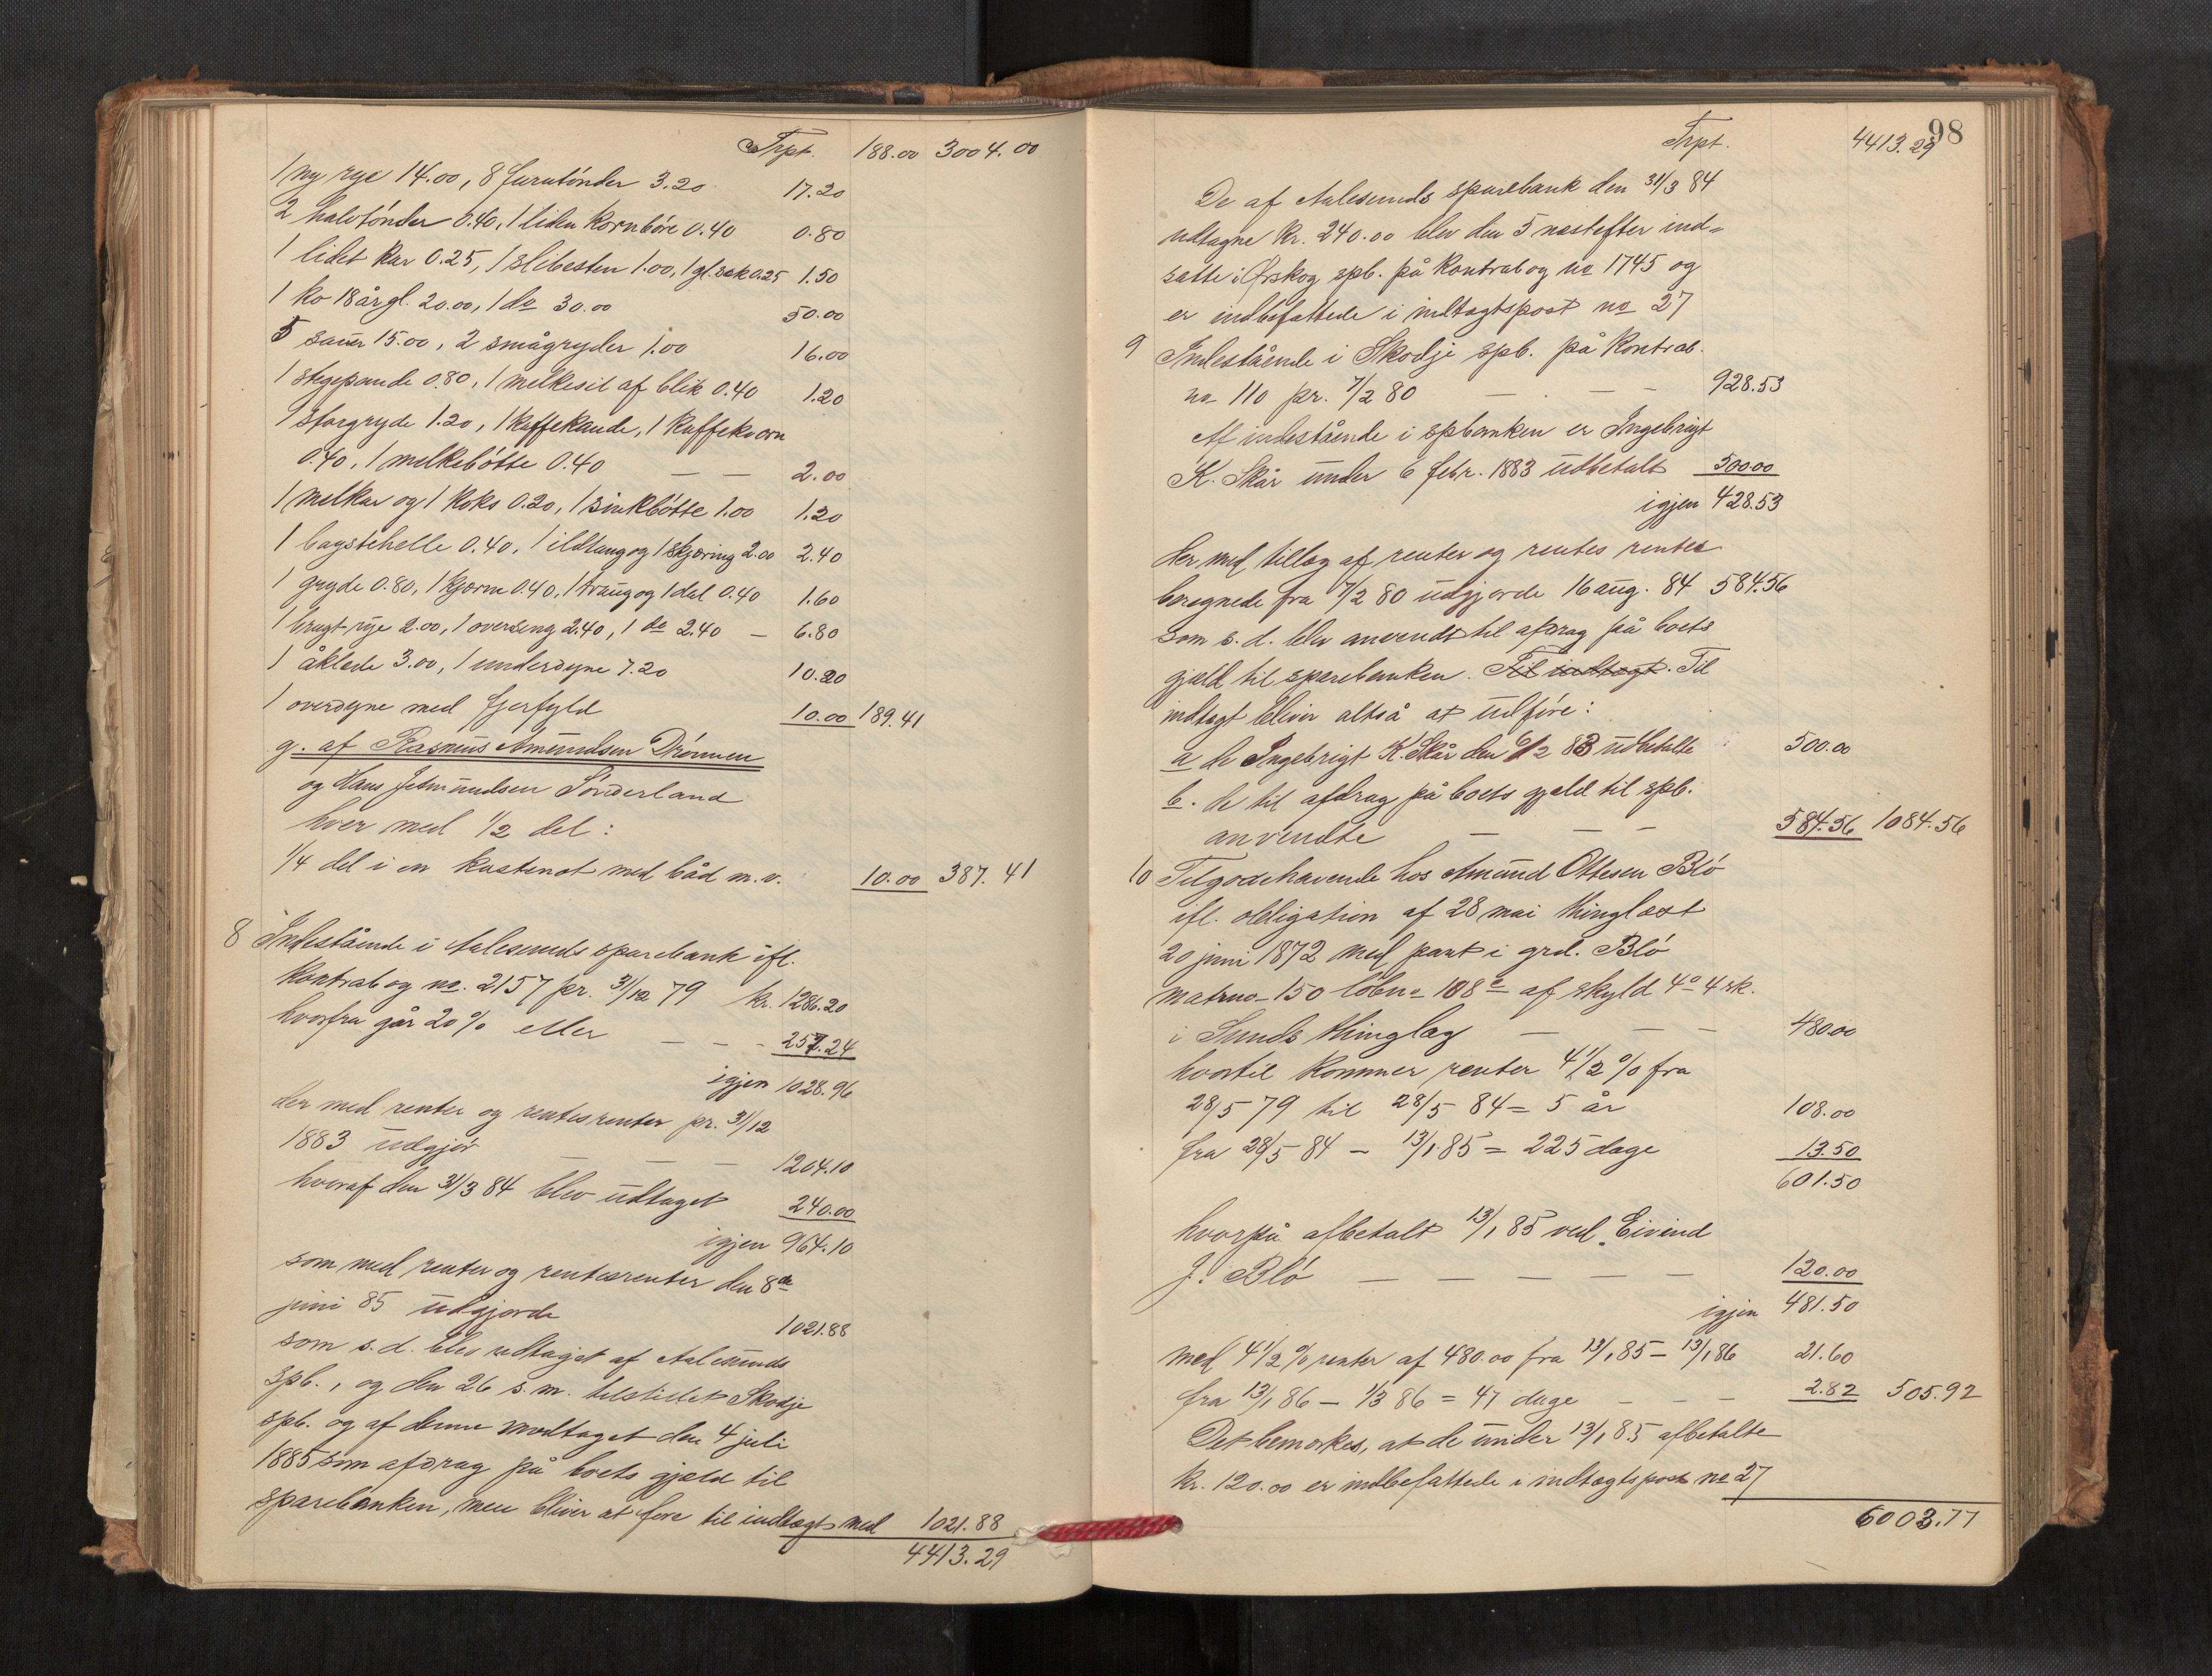 Trpt. 188.00 3004.00
1 ny rye 14.00, 8 furutónder 3.20 17.20
2 halvtónder 0.40, 1 liden kornbóre 0.40 0.80
1 lidet kar 0.25, 1 slibesten 1.00, 1 gl. sek 0.25 1.50
1 ko 18 år gl. 20.00, 1 do 30.00 50.00
5 sauer 15.00, 2 smågryder 1.00 16.00
1 stegepande 0.80, 1 melkesil af blik 0.40 1.20
1 storgryde 1.20, 1 kaffekande, 1 kaffekværn
0.40, 1 melkebótte 0.40 — — 2.00
1 melkar og 1 koks 0.20, 1 sinkbótte 1.00 1.20
1 bagstehelle 0.40, 1 ildtang og 1 skjæring 2.00 2.40
1 gryde 0.80, 1 kjærne 0.40, 1 traug og 1 dal 0.40 1.60
1 brugt rye 2.00, 1 overseng 2.40, 1 do 2.40 — 6.80
1 åklede 3.00, 1 underdyne 7.20 10.20
1 overdyne med fjerfyld 10.00 189.41
g. af Rasmus Amundsen Drónnen
og Hans Jetmundsen Sónderland
hver med 1/2 del:
1/4 del i en kastenot med båd m. v. 10.00 387.41
8 Indestående i Aalesunds sparebank ifl.
kontrabog no. 2157 pr. 31/12 79 kr. 1286.20
hvorfra går 20% eller — — - 257.24
igjen 1028.96
der med renter og rentesrenter pr. 31/12
1883 udgjór — — — 1204.10
hvoraf den 31/3 84 blev udtaget 240.00
igjen 964.10
som med renter og rentesrenter den 8de
juni 85 udgjorde 1021.88
som s. d. blev udtaget af Aalesunds
spb., og den 26 s. m. tilstillet Skodje
spb. og af denne modtaget den 4 juli
1885 som afdrag på boets gjæld til
sparebanken, men bliver at fóre til indtægt med 1021.88
4413.29
98
Trpt. 4413.29
De af Aalesunds sparebank den 31/3 84
udtagne kr. 240.00 blev den 5 næstefter ind-
satte i Ørskog spb. på kontrabog no 1745 og
er indbefattede i indtægtspost no 27
9 Indestående i Skodje spb. på kontrab.
no 110 pr. 7/2 80 — — — 928.53
Af indestående i spbanken er Ingebrigt
K. Skår under 6 febr. 1883 udbetalt 500.00
igjen 428.53
Her med tillæg af renter og rentes renter
beregnede fra 7/2 80 udgjorde 16 aug. 84 584.56
som s. d. blev anvendt til afdrag på boets
gjæld til sparebanken. Til indtægt. Til
indtægt bliver altså at udfóre:
a de Ingebrigt K. Skår den 6/2 83 udbetalte 500.00
b. de til afdrag på boets gjæld til spb.
anvendte — — — 584.56 1084.56
10 Tilgodehavende hos Amund Ottesen Bló
ifl. obligation af 28 mai thinglæst
20 juni 1872 med pant i grd. Bló
matrno 150 lóbno 108c af skyld 4o 4 sk.
i Sunds thinglag — — — 480.00
hvortil kommer renter 4 1/2 % fra
28/5 79 til 28/5 84 = 5 år 108.00
fra 28/5 84 – 13/1 85 = 225 dage 13.50
601.50
hvorpå afbetalt 13/1 85 ved Eivind
J. Bló — — — — — 120.00
igjen 481.50
med 4 1/2 % renter af 480.00 fra 13/1 85 – 13/1 86 21.60
fra 13/1 86 – 1/3 86 = 47 dage - - — 2.82 505.92
Det bemærkes, at de under 13/1 85 afbetalte
kr. 120.00 er indbefattede i indtægtspost no 27
6003.77